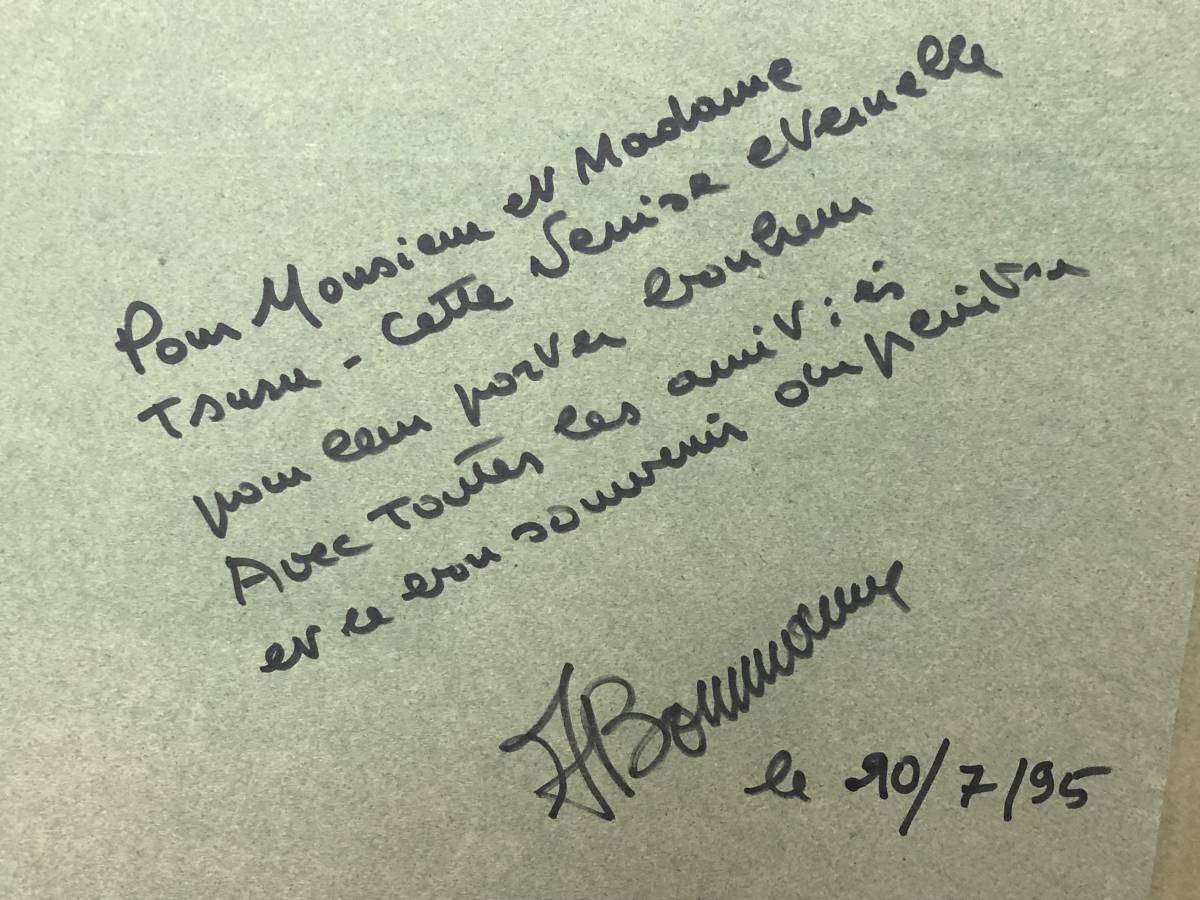 Pour Monsieur et Madame
Tsuru - cette Venise eternelle
pour leur porter bonheur
Avec toutes les amitiés
et le bon souvenir du peintre
le 10/7/95